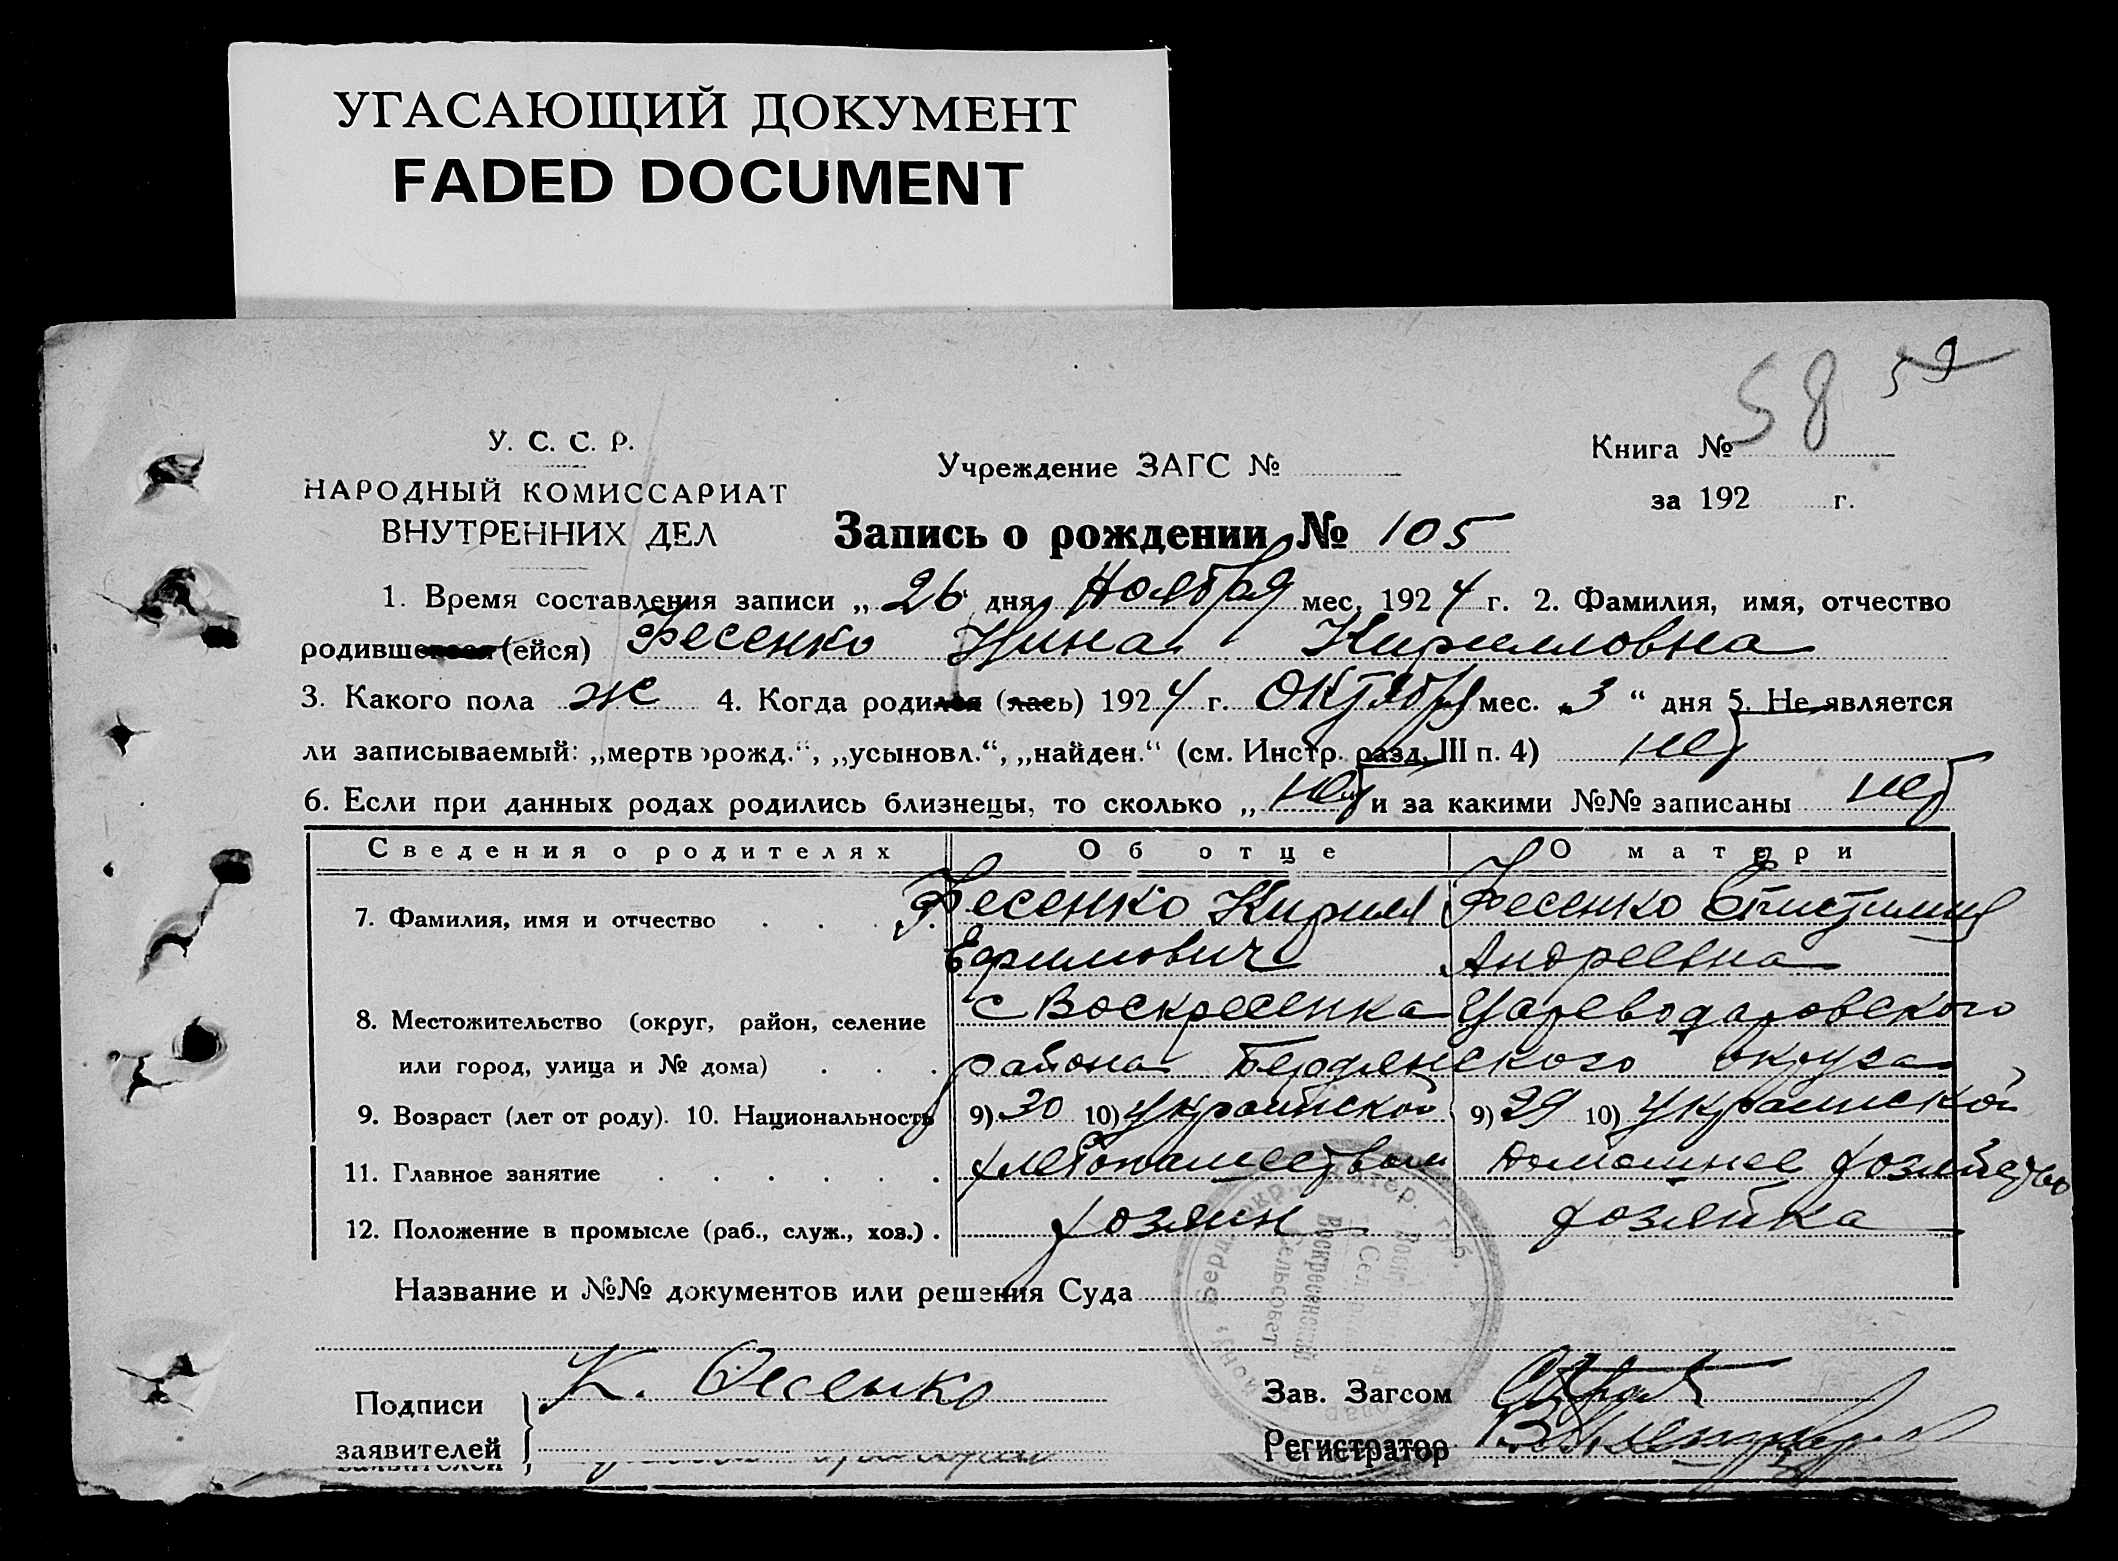 УГАСАЮЩИЙ ДОКУМЕНТ
FADED DOCUMENT
58 59
У. С. С. Р.
НАРОДНЫЙ КОМИССАРИАТ
ВНУТРЕННИХ ДЕЛ
Учреждение ЗАГС №
Книга №
за 192 г.
Запись о рождении № 105
1. Время составления записи „ 26 дня Ноября мес. 1924 г. 2. Фамилия, имя, отчество
родившегося (ейся) Фесенко Нина Кирилловна
3. Какого пола ж 4. Когда родился (лась) 1924 г. Октября мес. „3“ дня 5. Не является
ли записываемый: „мертворожд.“, „усыновл.“, „найден.“ (см. Инстр. разд. III п. 4) нет
6. Если при данных родах родились близнецы, то сколько „ нет и за какими №№ записаны нет
Сведения о родителях Об отце О матери
7. Фамилия, имя и отчество . . . Фесенко Кирилл Фесенко
Ефимович Андреевна
8. Местожительство (округ, район, селение с Воскресенка Цареводаровского
или город, улица и № дома) . . . района Бердянского округа
9. Возраст (лет от роду). 10. Национальность 9) 30 10) украинской 9) 29 10) украинской
11. Главное занятие . . . . . . хлебопашеством домашнее хозяйство
12. Положение в промысле (раб., служ., хоз.) . хозяин хозяйка
Название и №№ документов или решения Суда
Воскресенский
Сельсовет
Подписи
заявителей
К. Фесенко
Зав. Загсом
Регистратор